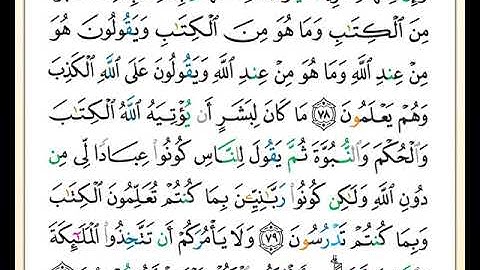 مِنَ ٱلْكِتَٰبِ وَمَا هُوَ مِنَ ٱلْكِتَٰبِ وَيَقُولُونَ هُوَ
مِنْ عِندِ ٱللَّهِ وَمَا هُوَ مِنْ عِندِ ٱللَّهِ وَيَقُولُونَ عَلَى ٱللَّهِ ٱلْكَذِبَ
وَهُمْ يَعْلَمُونَ ٧٨ مَا كَانَ لِبَشَرٍ أَن يُؤْتِيَهُ ٱللَّهُ ٱلْكِتَٰبَ
وَٱلْحُكْمَ وَٱلنُّبُوَّةَ ثُمَّ يَقُولَ لِلنَّاسِ كُونُوا۟ عِبَادًا لِّى مِن
دُونِ ٱللَّهِ وَلَٰكِن كُونُوا۟ رَبَّٰنِيِّـۧنَ بِمَا كُنتُمْ تُعَلِّمُونَ ٱلْكِتَٰبَ
وَبِمَا كُنتُمْ تَدْرُسُونَ ٧٩ وَلَا يَأْمُرَكُمْ أَن تَتَّخِذُوا۟ ٱلْمَلَٰٓئِكَةَ